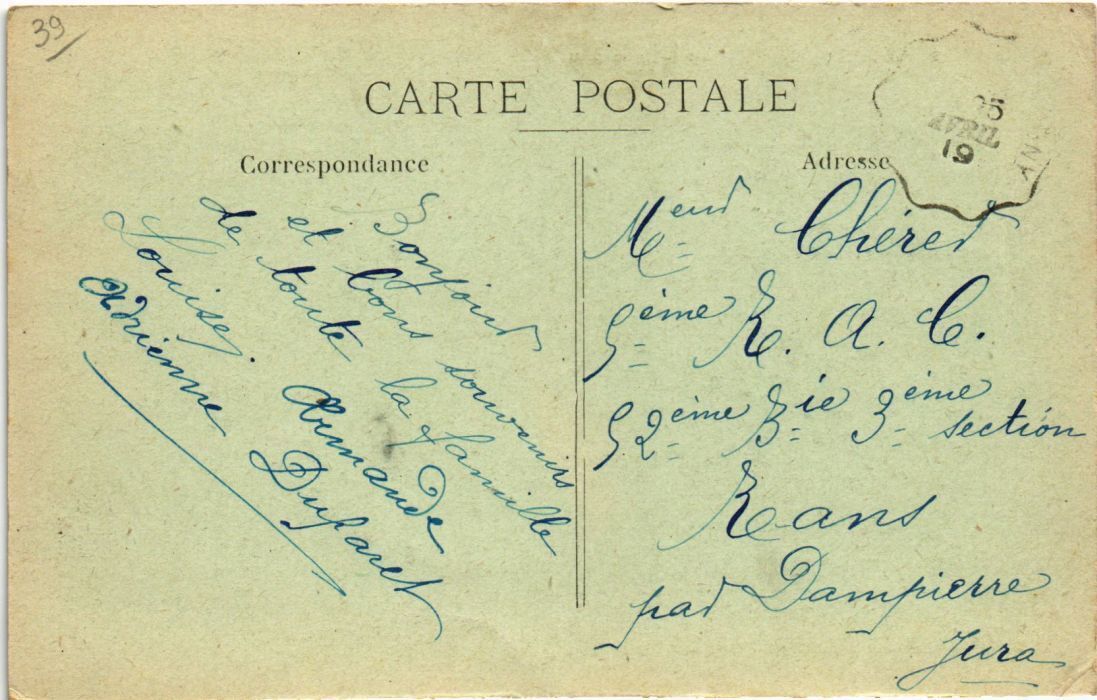 39
CARTE POSTALE
Correspondance
Bonjour
et bons souvenirs
de toute la famille
Louise. Armande
Adrienne Duparet
Adresse
25
AVRIL
19
AN
Meur Chéret
5ème R. A. C.
52ème Bie 3ème section
Rans
par Dampierre
Jura